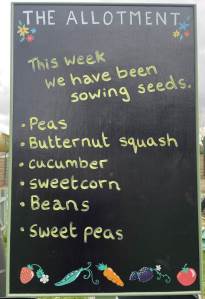 THE ALLOTMENT
This week
we have been
sowing seeds.
• Peas
• Butternut squash
• cucumber
• sweetcorn
• Beans
• Sweet peas